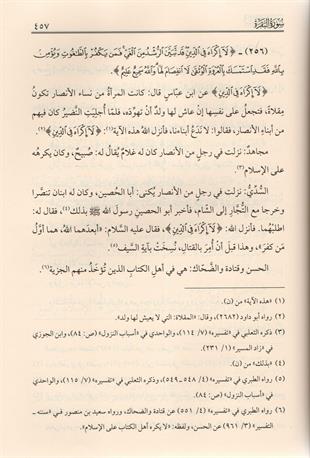 سورة البقرة
٤٥٧
(٢٥٦) - ﴿لَا إِكْرَاهَ فِي الدِّينِ قَد تَّبَيَّنَ الرُّشْدُ مِنَ الْغَيِّ فَمَن يَكْفُرْ بِالطَّاغُوتِ وَيُؤْمِن
بِاللَّهِ فَقَدِ اسْتَمْسَكَ بِالْعُرْوَةِ الْوُثْقَىٰ لَا انفِصَامَ لَهَا وَاللَّهُ سَمِيعٌ عَلِيمٌ﴾.
﴿لَا إِكْرَاهَ فِي الدِّينِ﴾ عن ابن عباسٍ قال: كانت المرأةُ من نساء الأنصار تكونُ
مِقلاةً، فتجعلُ على نفسِها إنْ عاش لها ولدٌ أنْ تهوِّدَه، فلمَّا أُجليَتِ النَّضيرُ كان فيهم
من أبناءِ الأنصار، فقالوا: لا نَدَعُ أبناءَنا، فأنزل اللهُ هذه الآيةَ(١): ﴿لَا إِكْرَاهَ فِي الدِّينِ﴾(٢).
مجاهدٌ: نزلت في رجلٍ من الأنصار كان له غلامٌ يُقال له: صُبيحٌ، وكان يكرهُه
على الإسلام(٣).
السُّدِّيُّ: نزلت في رجلٍ من الأنصار يُكنى: أبا الحُصين، وكان له ابنان تنصَّرا
وخرجا مع التُّجار إلى الشَّام، فأخبر أبو الحصين رسولَ الله ﷺ بذلك(٤)، فقال له:
اطلبْهُما. فأنزل الله: ﴿لَا إِكْرَاهَ فِي الدِّينِ﴾، فقال عليه السلام: «أبعدَهما اللهُ، هما أوَّلُ
مَن كفرَ»، وهذا قبلَ أنْ أُمِرَ بالقتال، نُسِخَتْ بآيةِ السَّيف(٥).
الحسن وقتادة والضَّحَّاك: هي في أهلِ الكتاب الذين تُؤخَذُ منهم الجزية(٦).
(١) «هذه الآية» من (ن).
(٢) رواه أبو داود (٢٦٨٢)، وقال: «المقلاة: التي لا يعيش لها ولد».
(٣) ذكره الثعلبي في «تفسيره» (٧/ ١١٤)، والواحدي في «أسباب النزول» (ص: ٨٤)، وابن الجوزي
في «زاد المسير» (١/ ٢٣١).
(٤) «بذلك» من (ن).
(٥) رواه الطبري في «تفسيره» (٤/ ٥٤٨ - ٥٤٩)، وذكره الثعلبي في «تفسيره» (٧/ ١١٥)، والواحدي
في «أسباب النزول» (ص: ٨٤).
(٦) رواه الطبري في «تفسيره» (٤/ ٥٥١) عن قتادة والضحاك، ورواه سعيد بن منصور في «سننه -
التفسير» (٣/ ٩٦١) عن الحسن، ولفظه: «لا يكره أهل الكتاب على الإسلام».